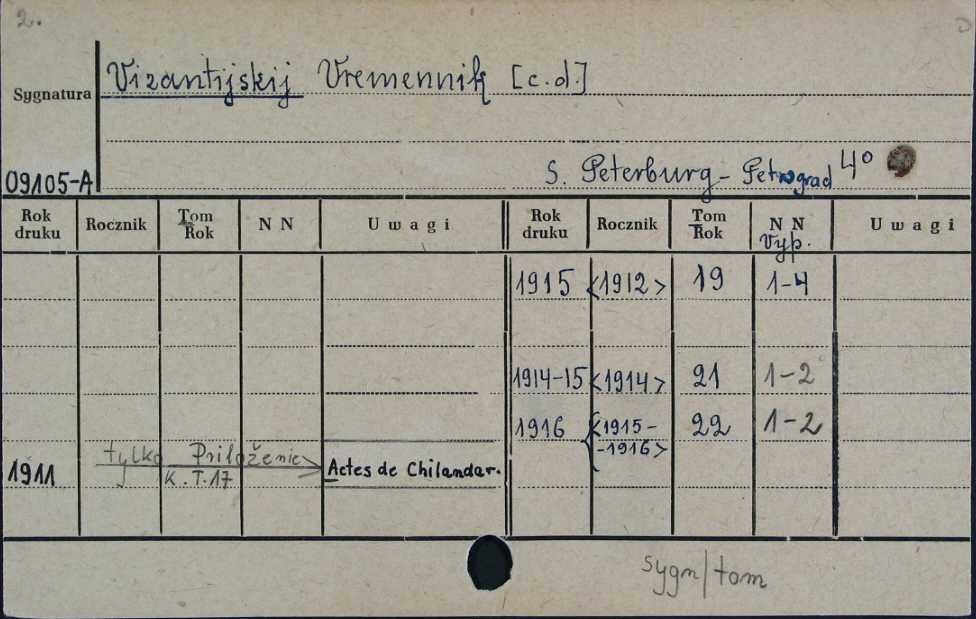 2.
Vizantijskij Vremennik [c.d.]
Sygnatura
09105-A
S. Peterburg - Petrograd 4°
Rok druku Rocznik Tom Rok N N Uwagi Rok druku Rocznik Tom Rok N N Vyp. Uwagi
1915 <1912> 19 1-4
1914-15 <1914> 21 1-2
1916 <1915- 22 1-2
-1916>
tylko Priloženie
1911 k. T. 17 Actes de Chilandar.
sygn/tom